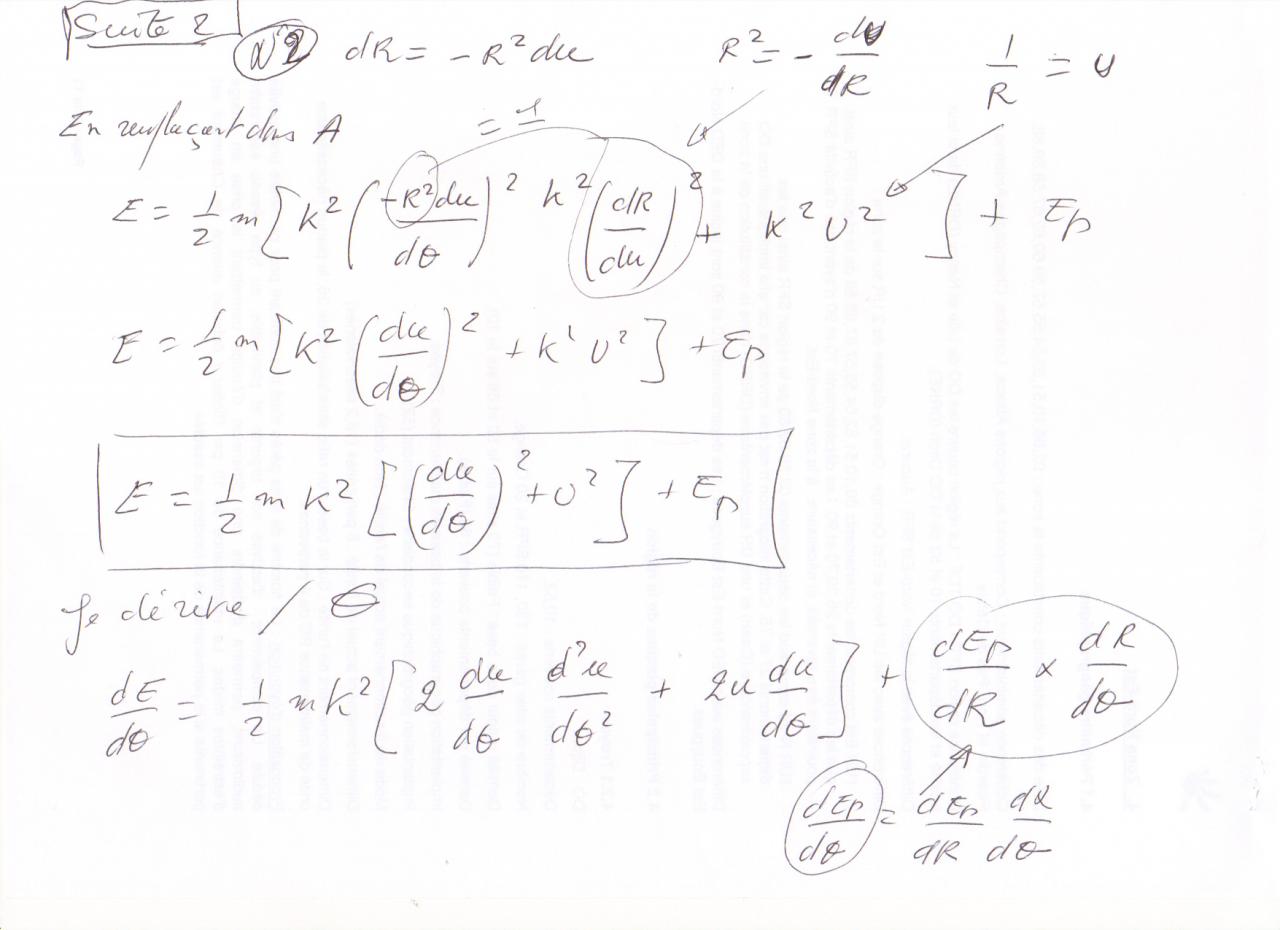 Suite 2
N°2 dR = - R² du R² = - du/dR 1/R = u
En remplaçant dans A = 1
E = 1/2 m [ K² ( -R² du / dθ )² K² ( dR/du )² + K² U² ] + Ep
E = 1/2 m [ K² ( du/dθ )² + K' U² ] + Ep
E = 1/2 m K² [ ( du/dθ )² + U² ] + Ep
Je dérive / θ
dE/dθ = 1/2 m K² [ 2 du/dθ d²u/dθ² + 2u du/dθ ] + dEp/dR × dR/dθ
dEp/dθ = dEp/dR dR/dθ